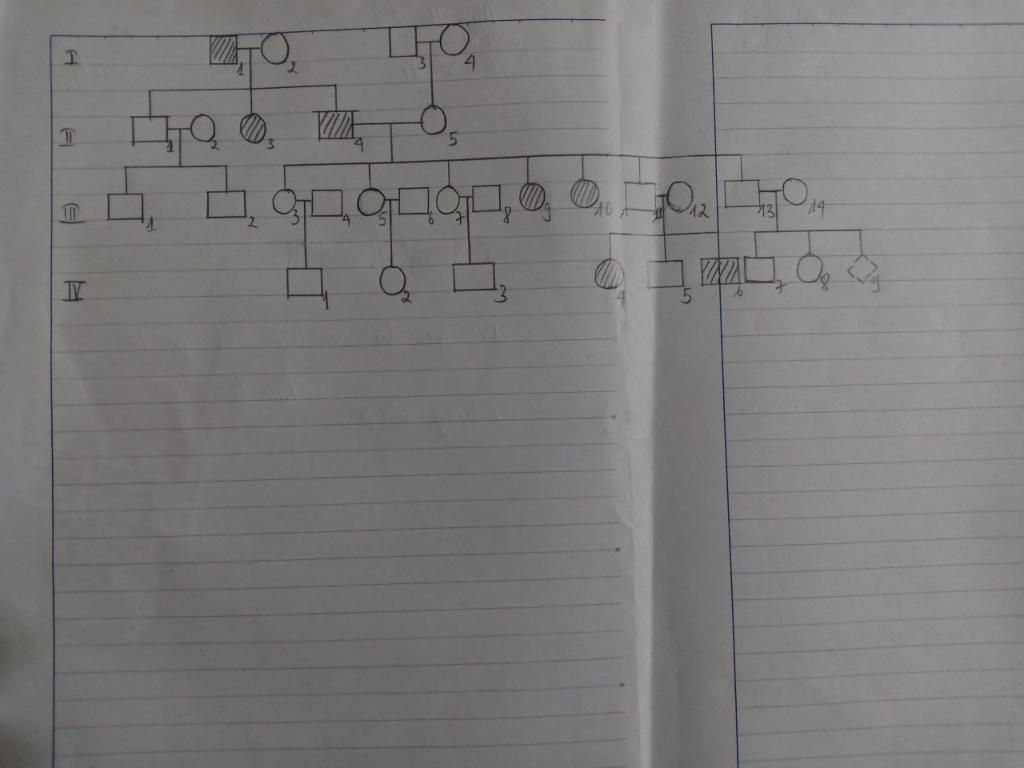 I 1 2 3 4
II 1 2 3 4 5
III 1 2 3 4 5 6 7 8 9 10 11 12 13 14
IV 1 2 3 4 5 6 7 8 9